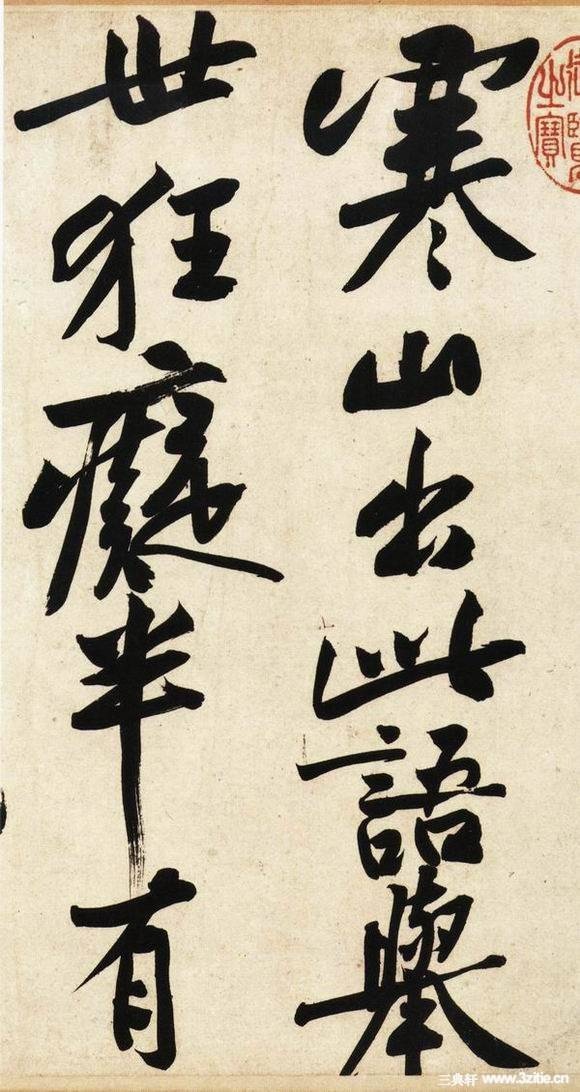 寒山出此語舉
世狂癡半有
御覽之寶
三典轩 www.3zitie.cn